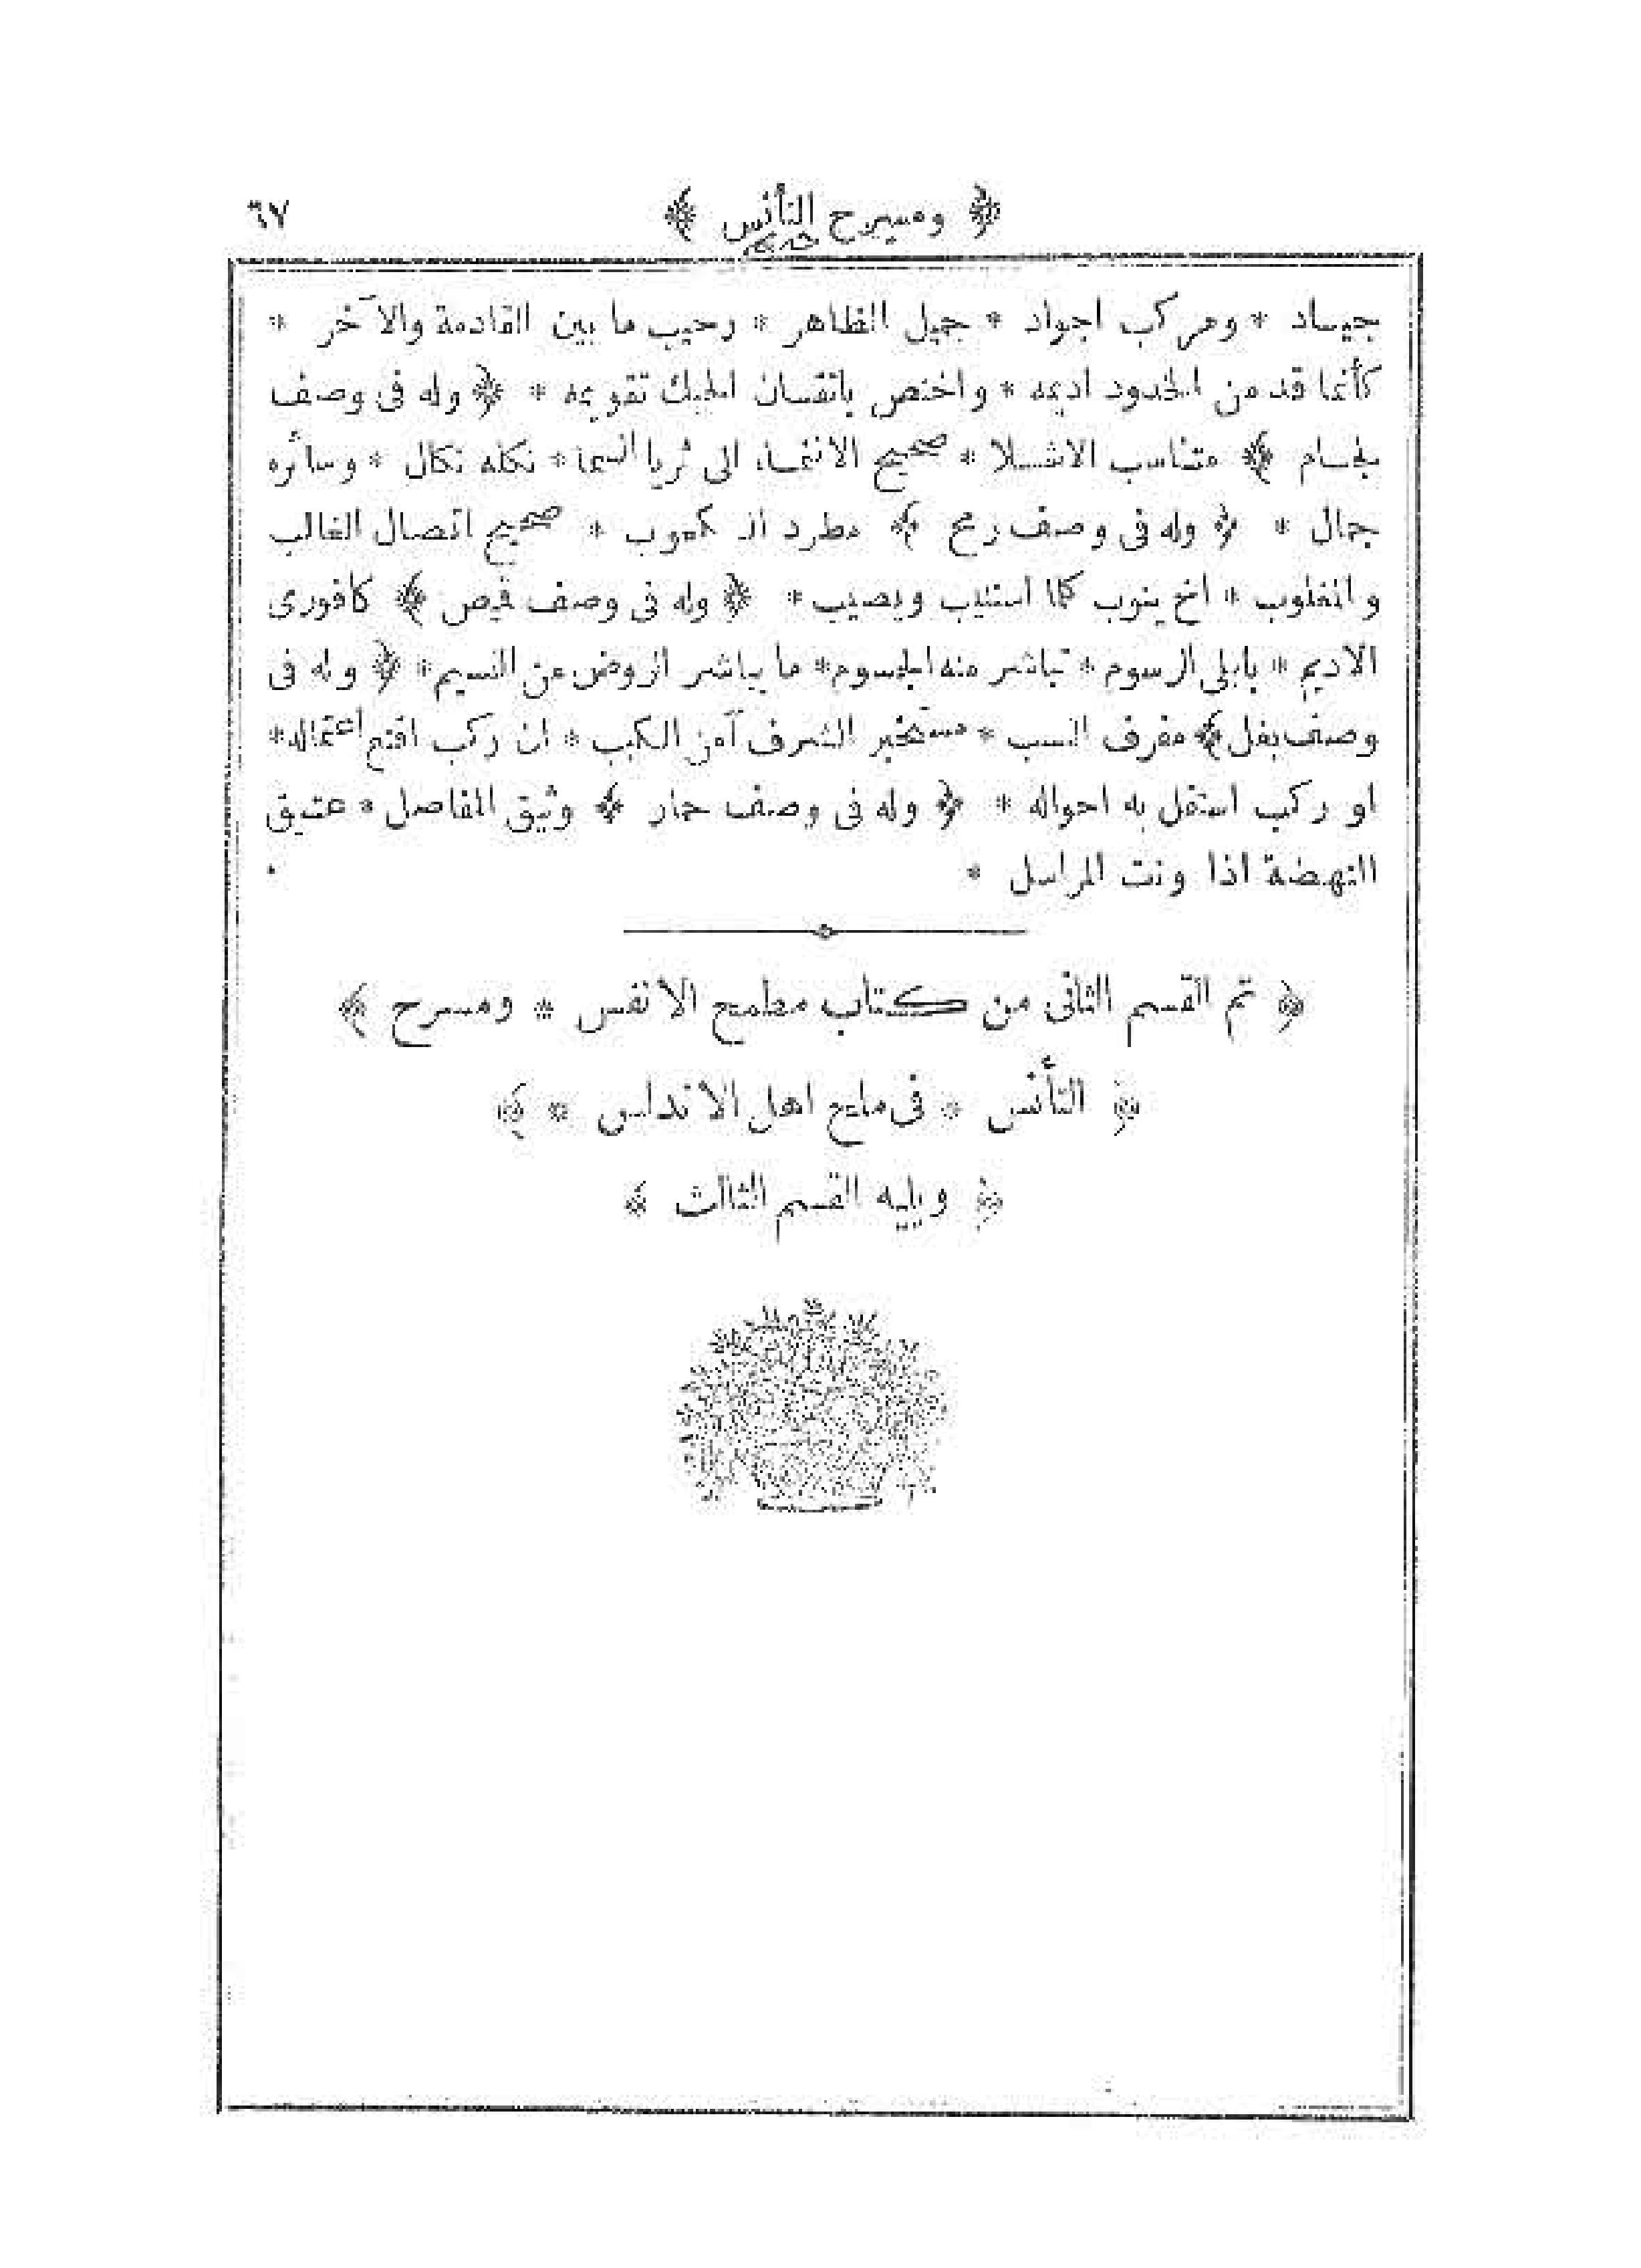 ﴿ ومسرح التأنس ﴾ ٦٧
جيساد * ومركب اجواد * جيل الظاهر * رحيب ما بين القادمة والآخر *
كأنما قد من الخدود اديمه * واختص باتقسان الحبك تقويمه * ﴿ وله فى وصف
لجسام ﴾ متناسب الاشسلا * صحيح الانتمسا، الى ثريا السما * نكله نكال * وسائره
جمال * ﴿ وله فى وصف رمح ﴾ مطرد الكعوب * صحيح اتصال الغالب
والمغلوب * اخ ينوب كلما استنيب ويصيب * ﴿ وله فى وصف قميص ﴾ كافورى
الاديم * بابلى الرسوم * تباشر منه الجسوم * ما يباشر الروض من النسيم * ﴿ وله فى
وصف بغل ﴾ مقرف النسب * مستخبر الشرف آمن الكبب * ان ركب اقنع اعتماله *
او ركب استقل به احواله * ﴿ وله فى وصف حمار ﴾ وثيق المفاصل * عتيق
النهضة اذا ونت المراسل *
﴿ تم القسم الثانى من كتاب مطمح الانفس * ومسرح ﴾
﴿ التأنس * فى ملح اهل الاندلس * ﴾
﴿ ويليه القسم الثالث ﴾